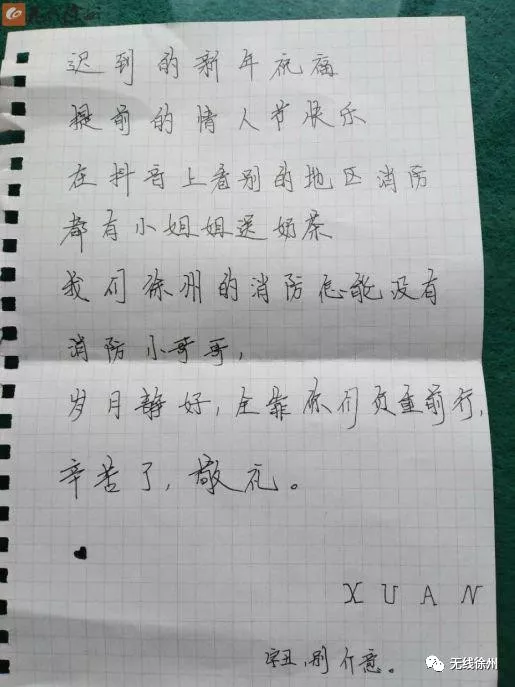 迟到的新年祝福
提前的情人节快乐
在抖音上看别的地区消防
都有小姐姐送奶茶
我们徐州的消防怎能没有
消防小哥哥,
岁月静好,全靠你们负重前行,
辛苦了,敬礼。
XUAN
字丑,别介意。
无线徐州